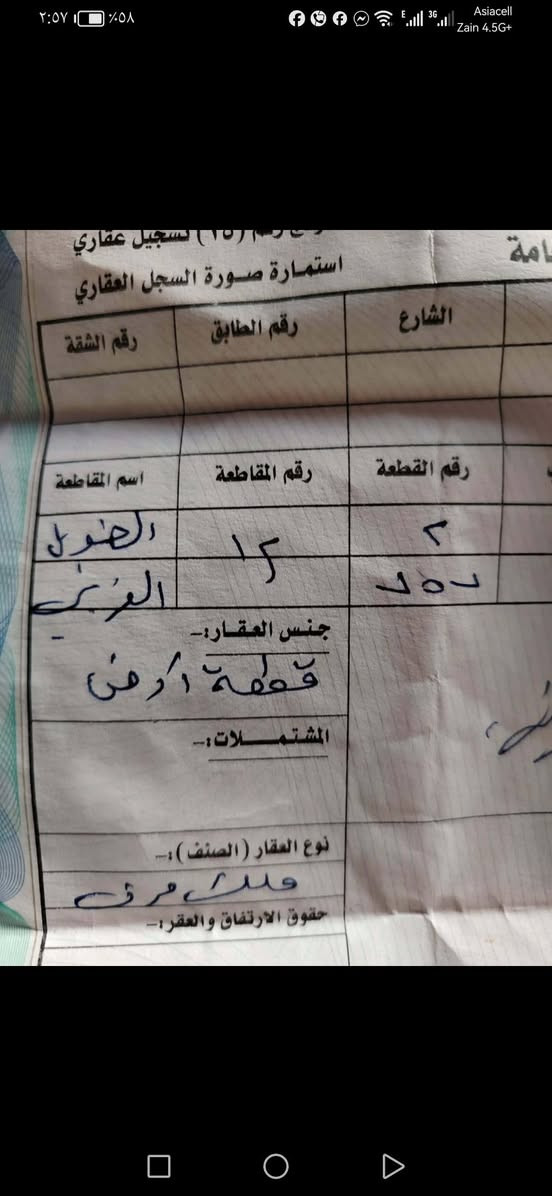 ٢:٥٧ ٪٥٨ E 3G Asiacell
Zain 4.5G+
(١٥) تسجيل عقاري
استمارة صورة السجل العقاري
الشارع رقم الطابق رقم الشقة
رقم القطعة رقم المقاطعة اسم المقاطعة
٢ ١٢
جنس العقار:-
قطعة ارض
المشتمـــلات:-
نوع العقار (الصنف):-
ملك صرف
حقوق الارتفاق والعقر:-